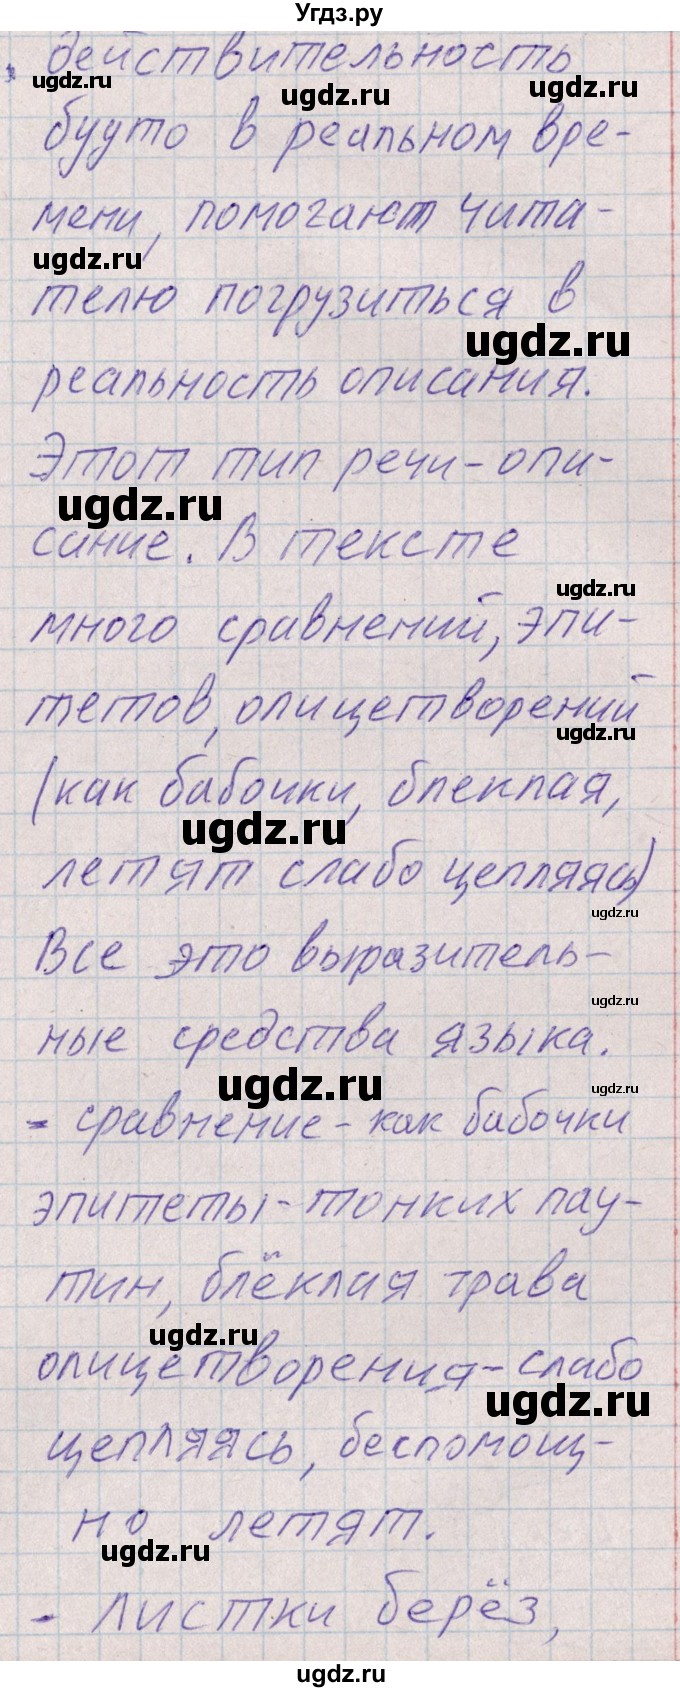 Угдз.ру
действительность
ugdz.ru ugdz.ru ugdz.ru
будто в реальном вре-
мени, помогают чита-
ugdz.ru
телю погрузиться в
ugdz.ru
реальность описания.
Этот тип речи - опи-
ugdz.ru
сание. В тексте
ugdz.ru
много сравнений, эпи-
тетов, олицетворений
ugdz.ru
(как бабочки, блеклая,
ugdz.ru
летят слабо цепляясь)
ugdz.ru
Все это выразитель-
ugdz.ru
ные средства языка.
ugdz.ru ugdz.ru
- сравнение - как бабочки
эпитеты - тонких пау-
тин, блёклая трава
ugdz.ru
олицетворения - слабо
ugdz.ru
цепляясь, беспомощ-
но летят.
ugdz.ru
- листки берёз,
ugdz.ru